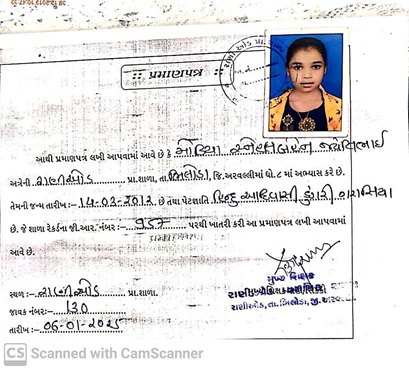 :: પ્રમાણપત્ર ::
આથી પ્રમાણપત્ર લખી આપવામાં આવે છે કે
અત્રેની રાણીઓડ પ્રા.શાળા, તા. ભિલોડા, જિ.અરવલ્લીમાં ધો. ૮ માં અભ્યાસ કરે છે.
તેમની જન્મ તારીખ :- ૧૫-૦૨-૨૦૧૨ છે તથા પેટાજ્ઞાતિ હિન્દુ આદિવાસી ડુંગરી ગરાસિયા
છે. જે શાળા રેકર્ડના જી.આર. નંબર :- ૯૬૭ પરથી ખાતરી કરી આ પ્રમાણપત્ર લખી આપવામાં
આવે છે.
સ્થળ :- રાણીઓડ પ્રા.શાળા
જાવક નંબર:- ૧૨૦
તારીખ :- ૦૬-૦૧-૨૦૨૫
મુખ્ય શિક્ષક
તા. ભિલોડા, જી.
CS Scanned with CamScanner